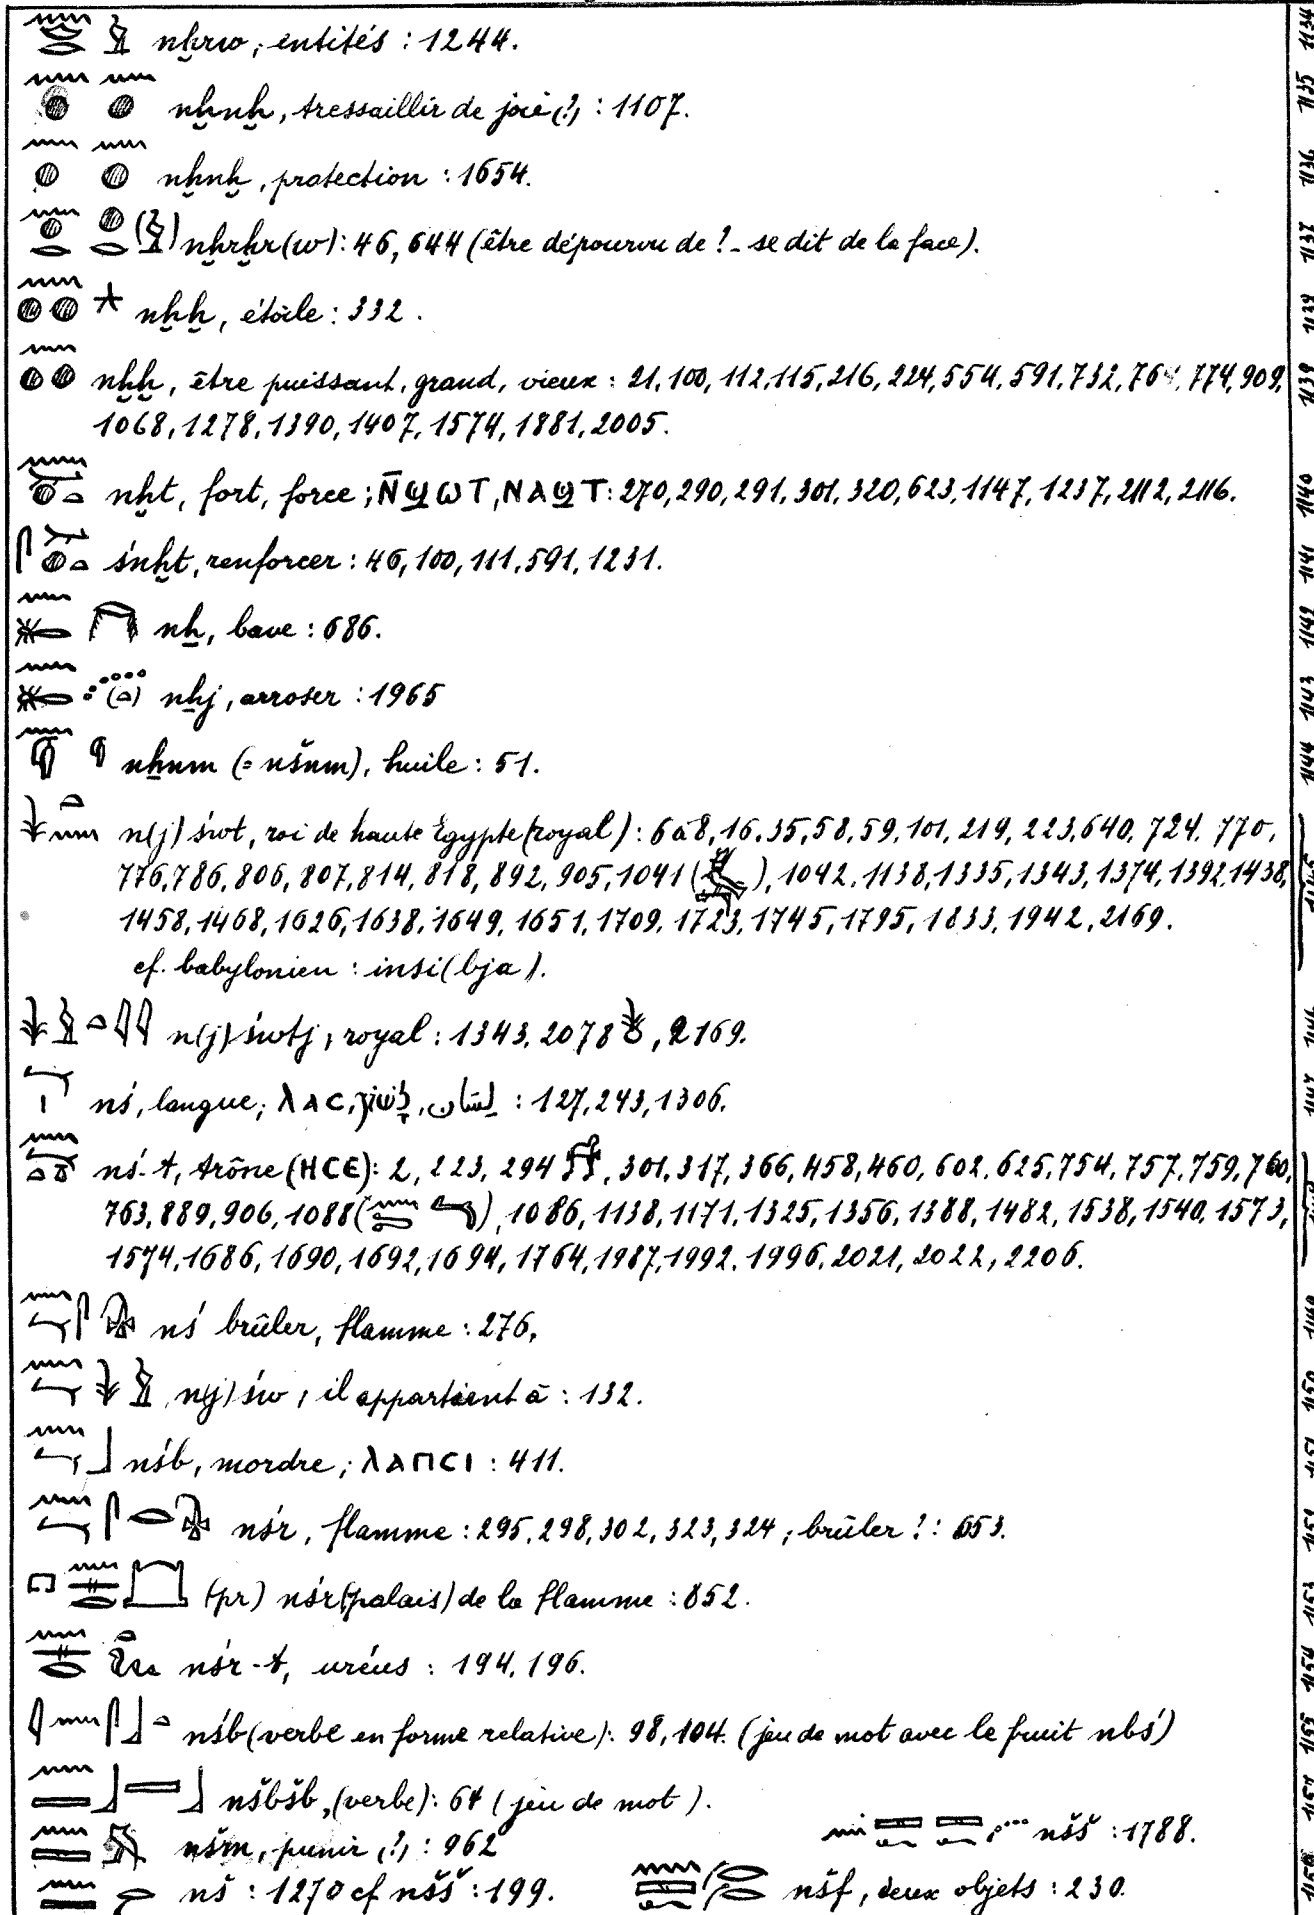 nḫrw, entités : 1244.
nḫnḫ, tressaillir de joie (?) : 1107.
nḫnḫ, protection : 1654.
nḫrḫr(w) : 46, 644 (être dépourvu de ? - se dit de la face).
nḫḫ, étoile : 332.
nḫḫ, être puissant, grand, vieux : 21, 100, 112, 115, 216, 224, 554, 591, 732, 774, 909,
1068, 1278, 1390, 1407, 1574, 1881, 2005.
nḫt, fort, force ; N̄ϢΩΤ, ΝΑϢΤ : 270, 290, 291, 301, 320, 623, 1147, 1237, 2112, 2116.
śnḫt, renforcer : 46, 100, 111, 591, 1231.
nẖ, bave : 686.
nẖj, arroser : 1965
nẖnm (= nšnm), huile : 51.
n(j) śwt, roi de haute Égypte (royal) : 6 à 8, 16, 35, 58, 59, 101, 219, 223, 640, 724, 770,
776, 786, 806, 807, 814, 818, 892, 905, 1041 ( ), 1042, 1138, 1335, 1343, 1374, 1392, 1438,
1458, 1468, 1626, 1638, 1649, 1651, 1709, 1723, 1745, 1795, 1833, 1942, 2169.
cf. babylonien : insi(bja).
n(j) śwtj, royal : 1343, 2078, 2169.
nś, langue ; λΑC, לָשׁוֹן, لسَان : 127, 243, 1306.
nś-t, trône (ΗCЄ) : 2, 223, 294, 301, 317, 366, 458, 460, 602, 625, 754, 757, 759, 760,
763, 889, 906, 1088 ( ), 1086, 1138, 1171, 1325, 1356, 1388, 1482, 1538, 1540, 1573,
1574, 1686, 1690, 1692, 1694, 1764, 1987, 1992, 1996, 2021, 2022, 2206.
nś brûler, flamme : 276,
n(j) św, il appartient à : 132.
nśb, mordre ; λΑΠCΙ : 411.
nśr, flamme : 295, 298, 302, 323, 324 ; brûler ? : 653.
(pr) nśr (palais) de la flamme : 852.
nśr-t, uréus : 194, 196.
nśb (verbe en forme relative) : 98, 104. (jeu de mot avec le fruit nbś)
nšbšb, (verbe) : 64 (jeu de mot).
nšm, punir (?) : 962
nšš : 1788.
nš : 1270 cf nšš : 199.
nšf, deux objets : 230.
1134
1135
1136
1137
1138
1139
1140
1141
1142
1143
1144
1145
1146
1147
1148
1149
1150
1151
1152
1153
1154
1155